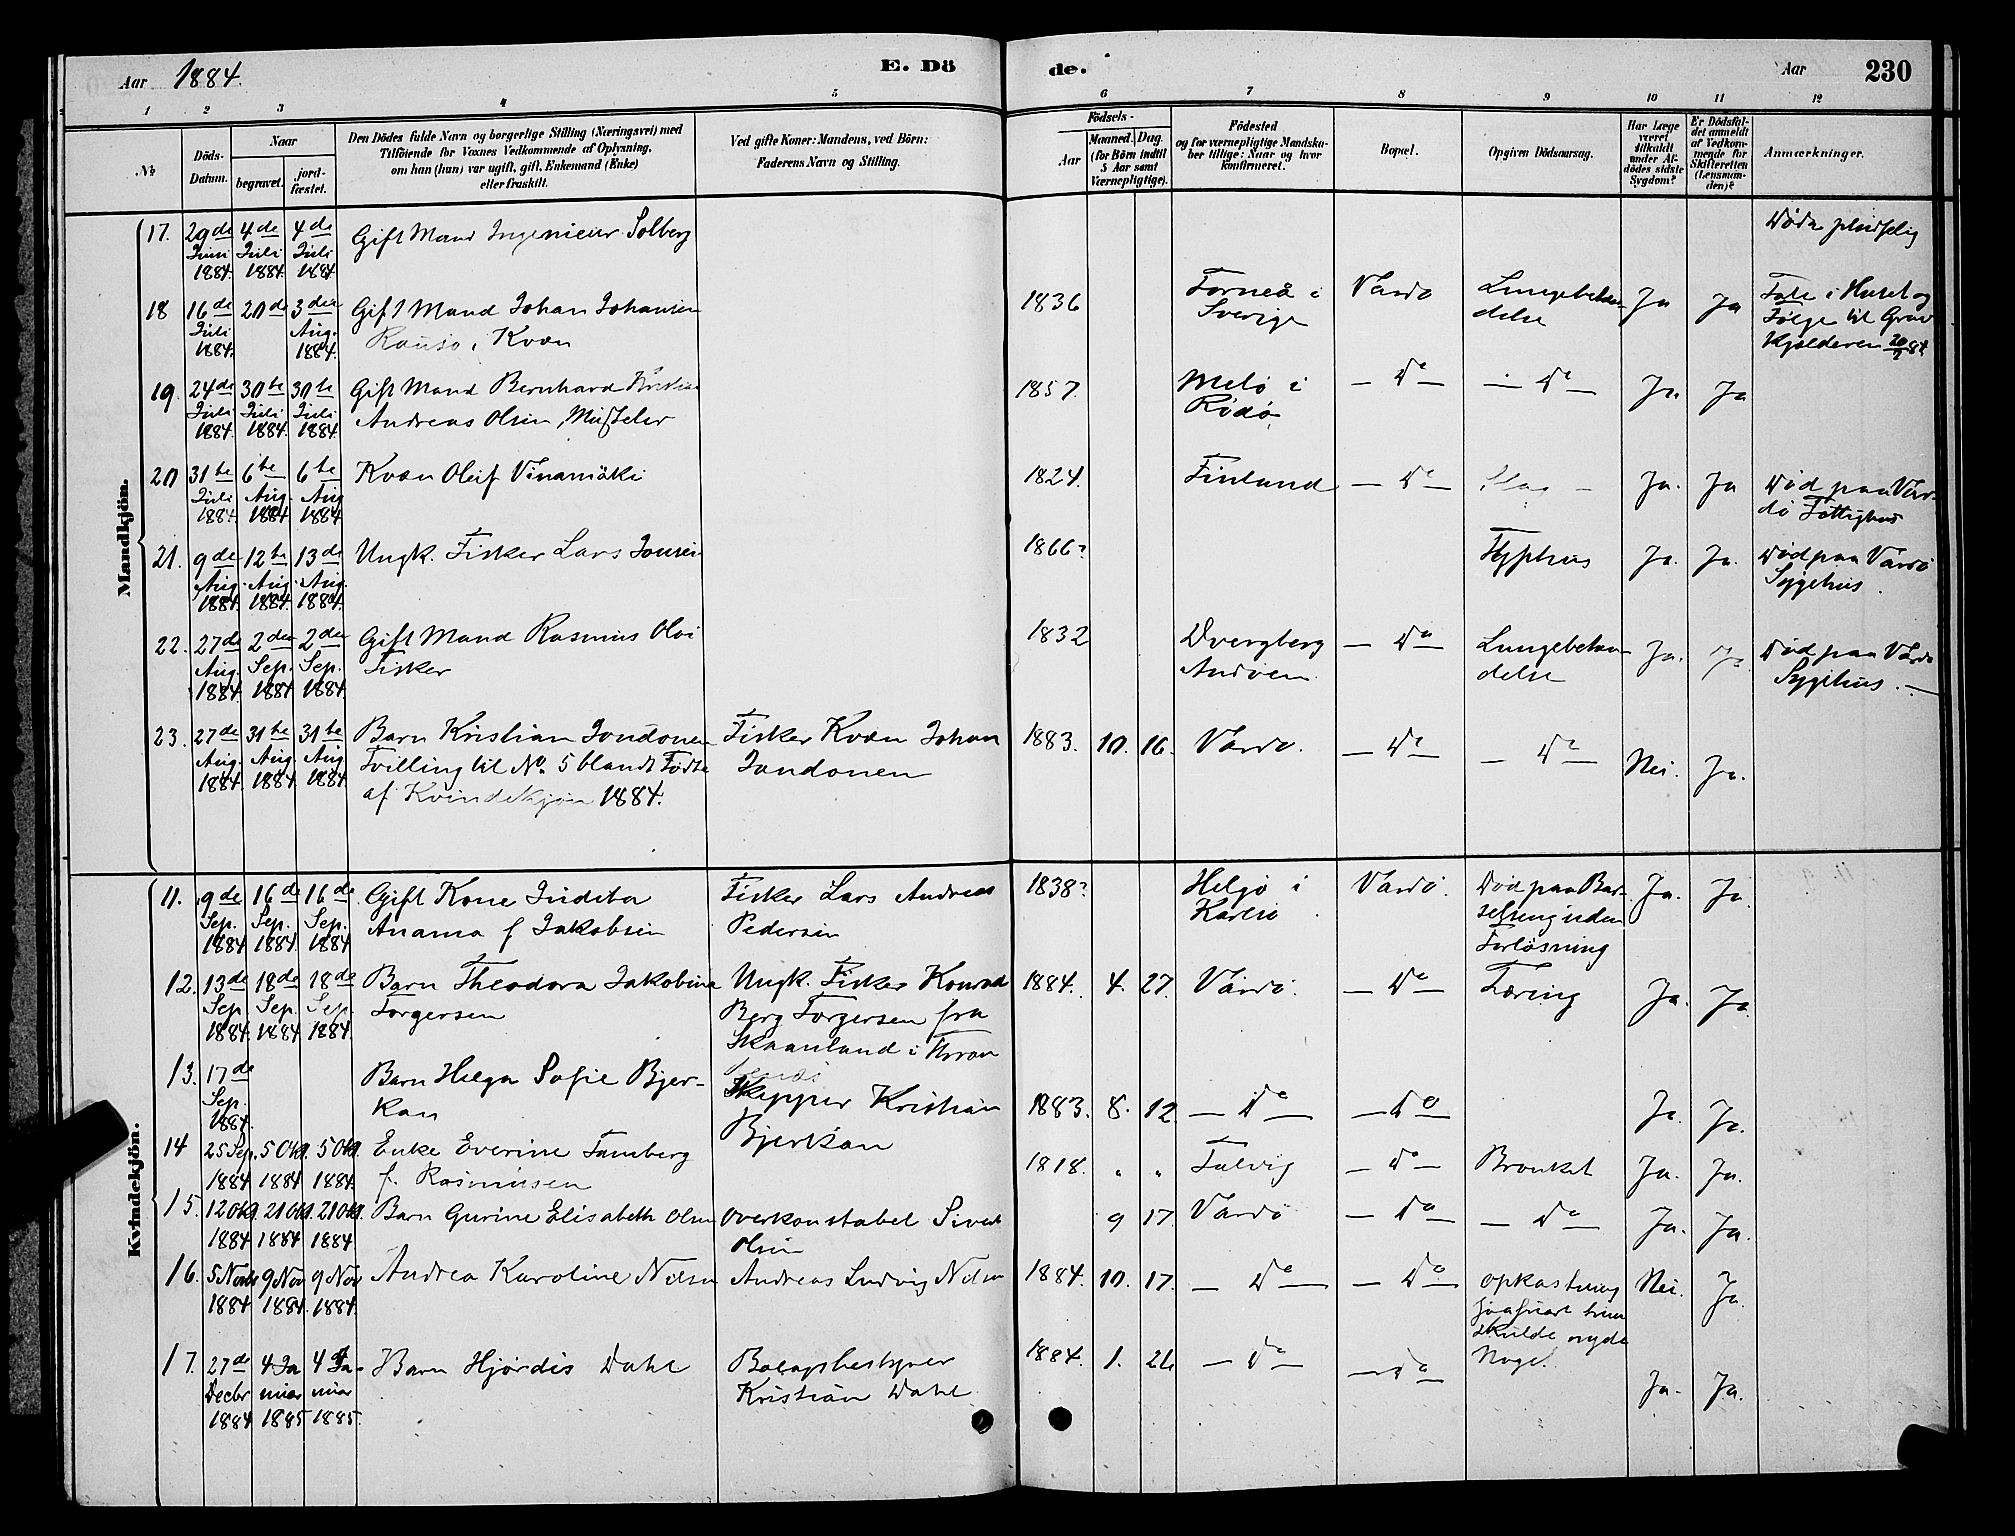 Aar 1884.
E. Dö
de.
Aar
230
1 2 3 4 5 6 7 8 9 10 11 12
№
Döds-
Datum.
Naar
begravet.
jord-
fæstet.
Den Dödes fulde Navn og borgerlige Stilling (Næringsvei) med
Tilföiende for Voxnes Vedkommende af Oplysning,
om han (hun) var ugift, gift, Enkemand (Enke)
eller fraskilt.
Ved gifte Koner: Mandens, ved Börn:
Faderens Navn og Stilling.
Födsels-
Aar
Maaned.
Dag.
(for Börn indtil
5 Aar samt
Værnepligtige).
Födested
og for værnepligtige Mandska-
ber tillige: Naar og hvor
konfirmeret.
Bopæl.
Opgiven Dödsaarsag.
Har Læge
været
tilkaldt
under Af-
dödes sidste
Sygdom?
Er Dödsfal-
det anmeldt
af Vedkom-
mende for
Skifteretten
(Lensman-
den)?
Anmærkninger.
Mandkjön.
17. 29de Juni 1884. 4de Juli 1884. 4de Juli 1884. Gift Mand Ingenieur Solberg
Døde pludselig
18 16de Juli 1884. 20de 3die Aug. 1884. Gift Mand Johan Johansen
Kvæn
1836 Torneå i
Sverige
Vardø
Lungebetæn-
delse
Ja Ja
Tale i Huset og
Følge til Grav
Kjælderen 20/7 84.
19. 24de Juli 1884. 30te Juli 1884. 30te Juli 1884. Gift Mand Bernhard Kristian
Andreas Olsen,
1857. Melø i
Rødø.
— Do — — Do — Ja. Ja
20 31te Juli 1884 6te Aug. 1884 6te Aug 1884 Kvæn Olif Vinamäki
1824. Finland — Do — Slag — Ja. Ja
Død paa Var-
dø Fattighus
21. 9de Aug. 1884. 12te Aug. 1884. 13de Aug. 1884. Ungk. Fisker Lars Jonsen
1866? Typhus Ja. Ja.
Død paa Vardø
Sygehus.
22. 27de Aug 1884. 2den Sep. 1884 2den Sep. 1884 Gift Mand Rasmus
Fisker
1832 Dvergberg
Andøen.
— Do — Lungebetæn-
delse
Ja. Ja
Død paa Vardø
Sygehus. —
23. 27de Aug. 1884 31te Aug 1884 31te Aug 1884 Barn Kristian Jondonen
Tvilling til No. 5 blandt Fødte
af Kvindekjøn 1884.
Fisker Kvæn Johan
Jondonen
1883. 10. 16. Vardø. — Do — — Do — Nei. Ja.
Kvindekjön.
11. 9de Sep. 1884 16de Sep. 1884. 16de Sep. 1884 Gift Kone Indeta
Anama f Jakobsen
Fisker Lars Andreas
Pedersen
1838? Helgø i
Karlsø
Vardø.
Død paa Bar-
selseng uden
Forløsning
Ja. Ja.
12. 13de Sep 1884. 18de Sep. 1884 18de Sep. 1884. Barn Theodora Jakobina
Torgersen
Ungk. Fisker Konrad
Berg Torgersen fra
Skaanland i Tron
denæs
1884. 4. 27. Vardø. — Do — Tæring Ja. Ja.
13. 17de Sep. 1884. Barn Helga Sofie Bjer-
kan
Skipper Kristian
Bjerkan
1883. 8. 12. — Do — — Do — Ja. Ja.
14 25 Sep. 1884 5 Okt. 1884 5 Okt. 1884. Enke Everine Tamberg
f. Rasmusen
1818. " " Talvig — Do — Bronkit Ja. Ja.
15. 12 Okt. 1884 21 Okt. 1884 21 Okt. 1884 Barn Gurine Elisabeth Olsen
Overkonstabel Sivert
Olsen
9 17. Vardø — Do — — Do — Ja. Ja.
16. 5 Novbr 1884 9 Nov 1884. 9 Nov 1884. Andrea Karoline Nilsen
Andreas Ludvig Nilsen
1884. 10. 17. — Do — — Do — opkastning
saasnart hun
skulde nyde
Noget.
Nei. Ja.
17. 27de Decbr 1884 4 Januar 1885 4 Januar 1885. Barn Hjørdis Dahl
Bolagsbestyrer
Kristian Dahl
1884. 1. 26 — Do — — Do — Ja. Ja.